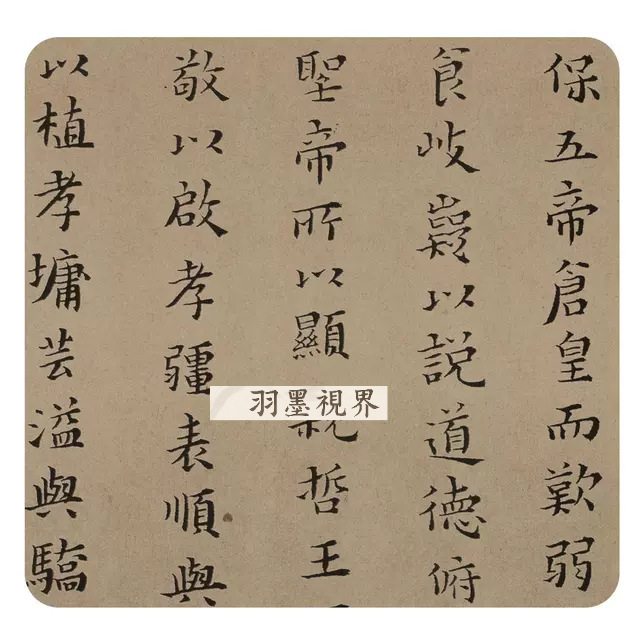 保五帝倉皇而歎弱
食岐嶷以説道德俯
聖帝所以顯親哲王
敬以啟孝疆表順與
以植孝墉芸溢與驕
羽墨視界